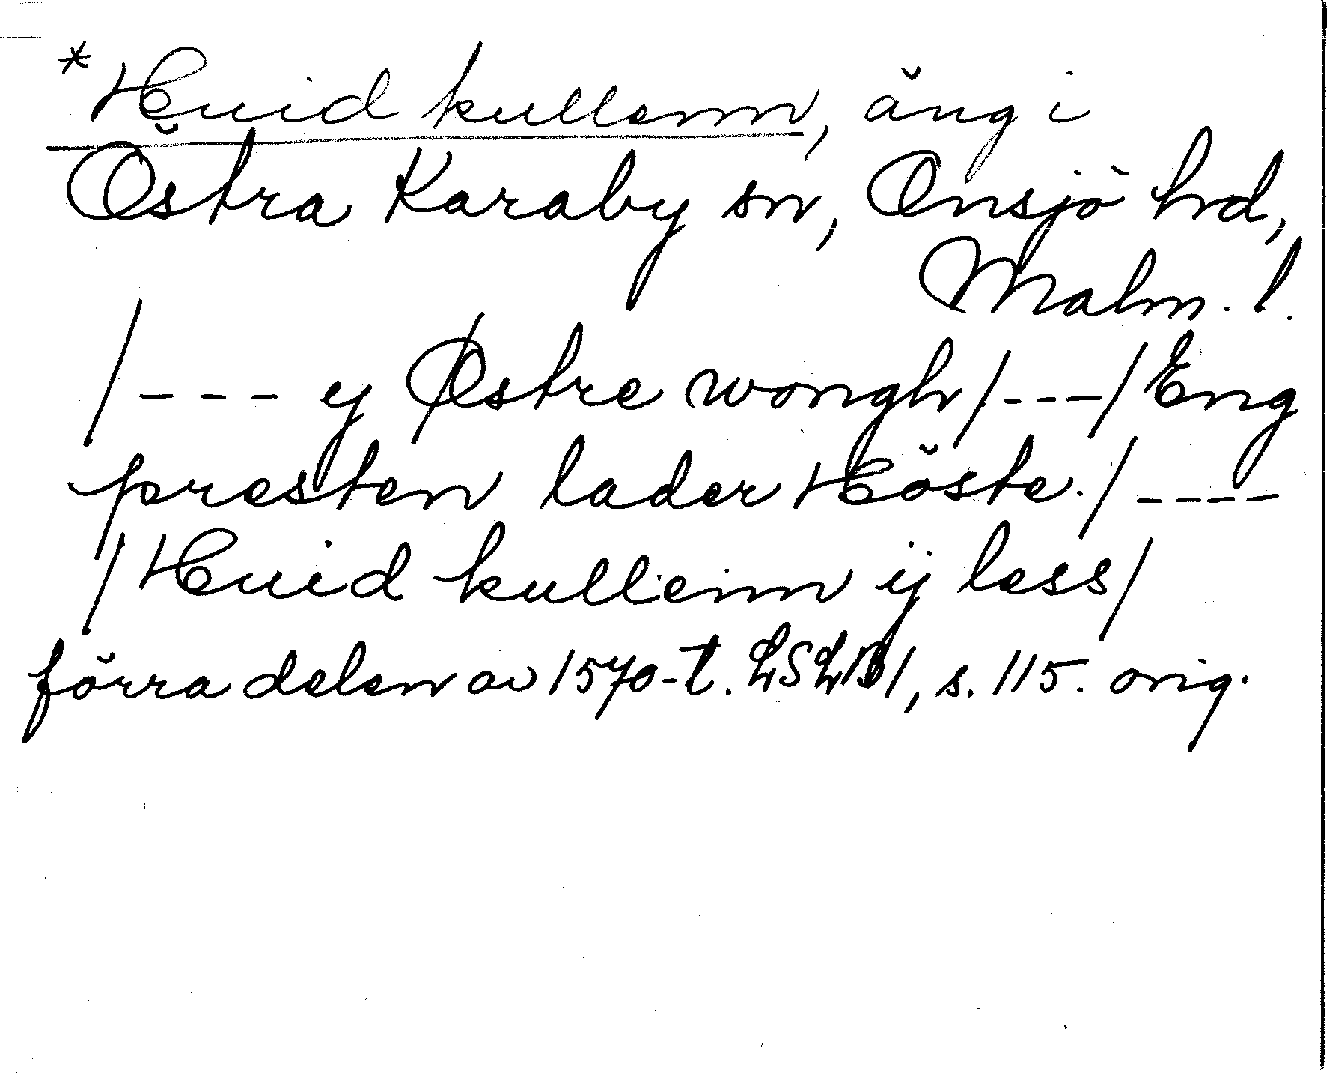 *Huid kullenn, äng i
Östra Karaby sn, Onsjö hrd,
Malm. l.
/---- y Østre wongh/---/Eng
presten lader Höste./----
/Huid kullenn ij less/
förra delen av 1570-t. LSLB1, s. 115. orig.